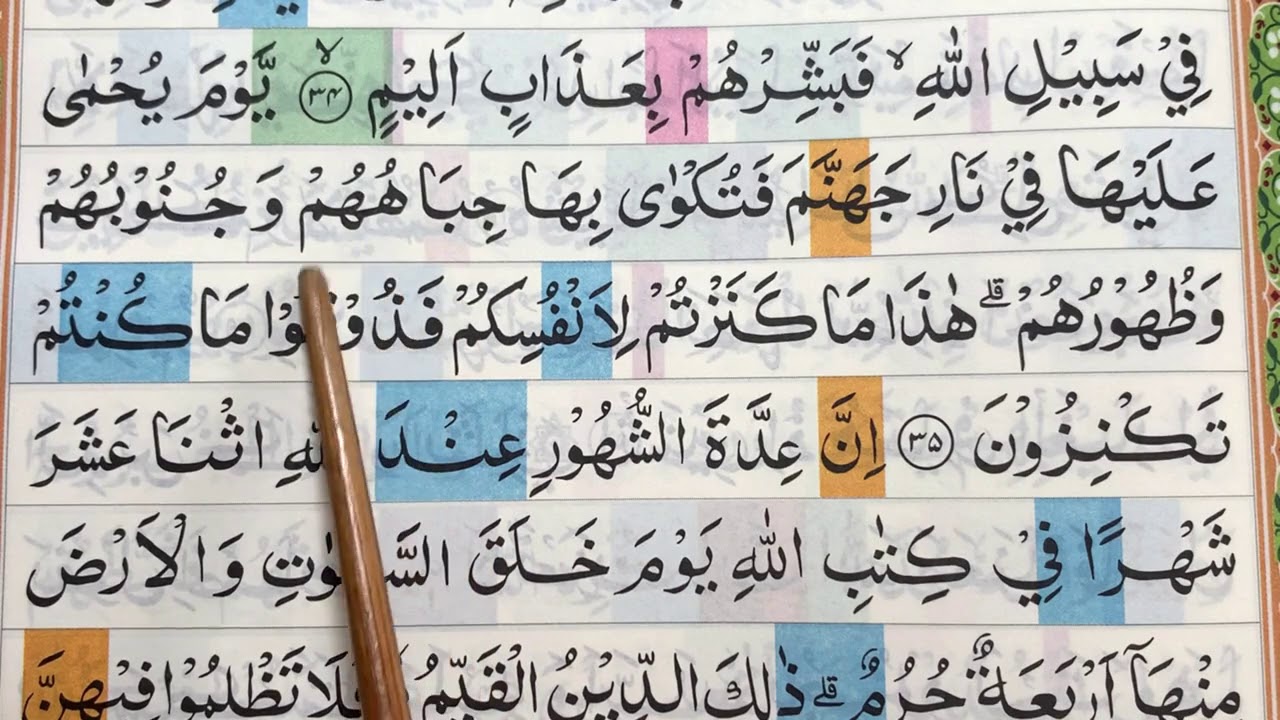 فِيْ سَبِيْلِ اللّٰهِ ۙ فَبَشِّرْهُمْ بِعَذَابٍ اَلِيْمٍ ۙ﴿۳۴﴾ يَّوْمَ يُحْمٰى
عَلَيْهَا فِيْ نَارِ جَهَنَّمَ فَتُكْوٰى بِهَا جِبَاهُهُمْ وَ جُنُوْبُهُمْ
وَظُهُوْرُهُمْ ؕۗ هٰذَا مَا كَنَزْتُمْ لِاَنْفُسِكُمْ فَذُوْقُوْا مَا كُنْتُمْ
تَكْنِزُوْنَ ﴿۳۵﴾ اِنَّ عِدَّةَ الشُّهُوْرِ عِنْدَ اللّٰهِ اثْنَا عَشَرَ
شَهْرًا فِيْ كِتٰبِ اللّٰهِ يَوْمَ خَلَقَ السَّمٰوٰتِ وَ الْاَرْضَ
مِنْهَاۤ اَرْبَعَةٌ حُرُمٌ ؕ ذٰلِكَ الدِّيْنُ الْقَيِّمُ فَلَا تَظْلِمُوْا فِيْهِنَّ